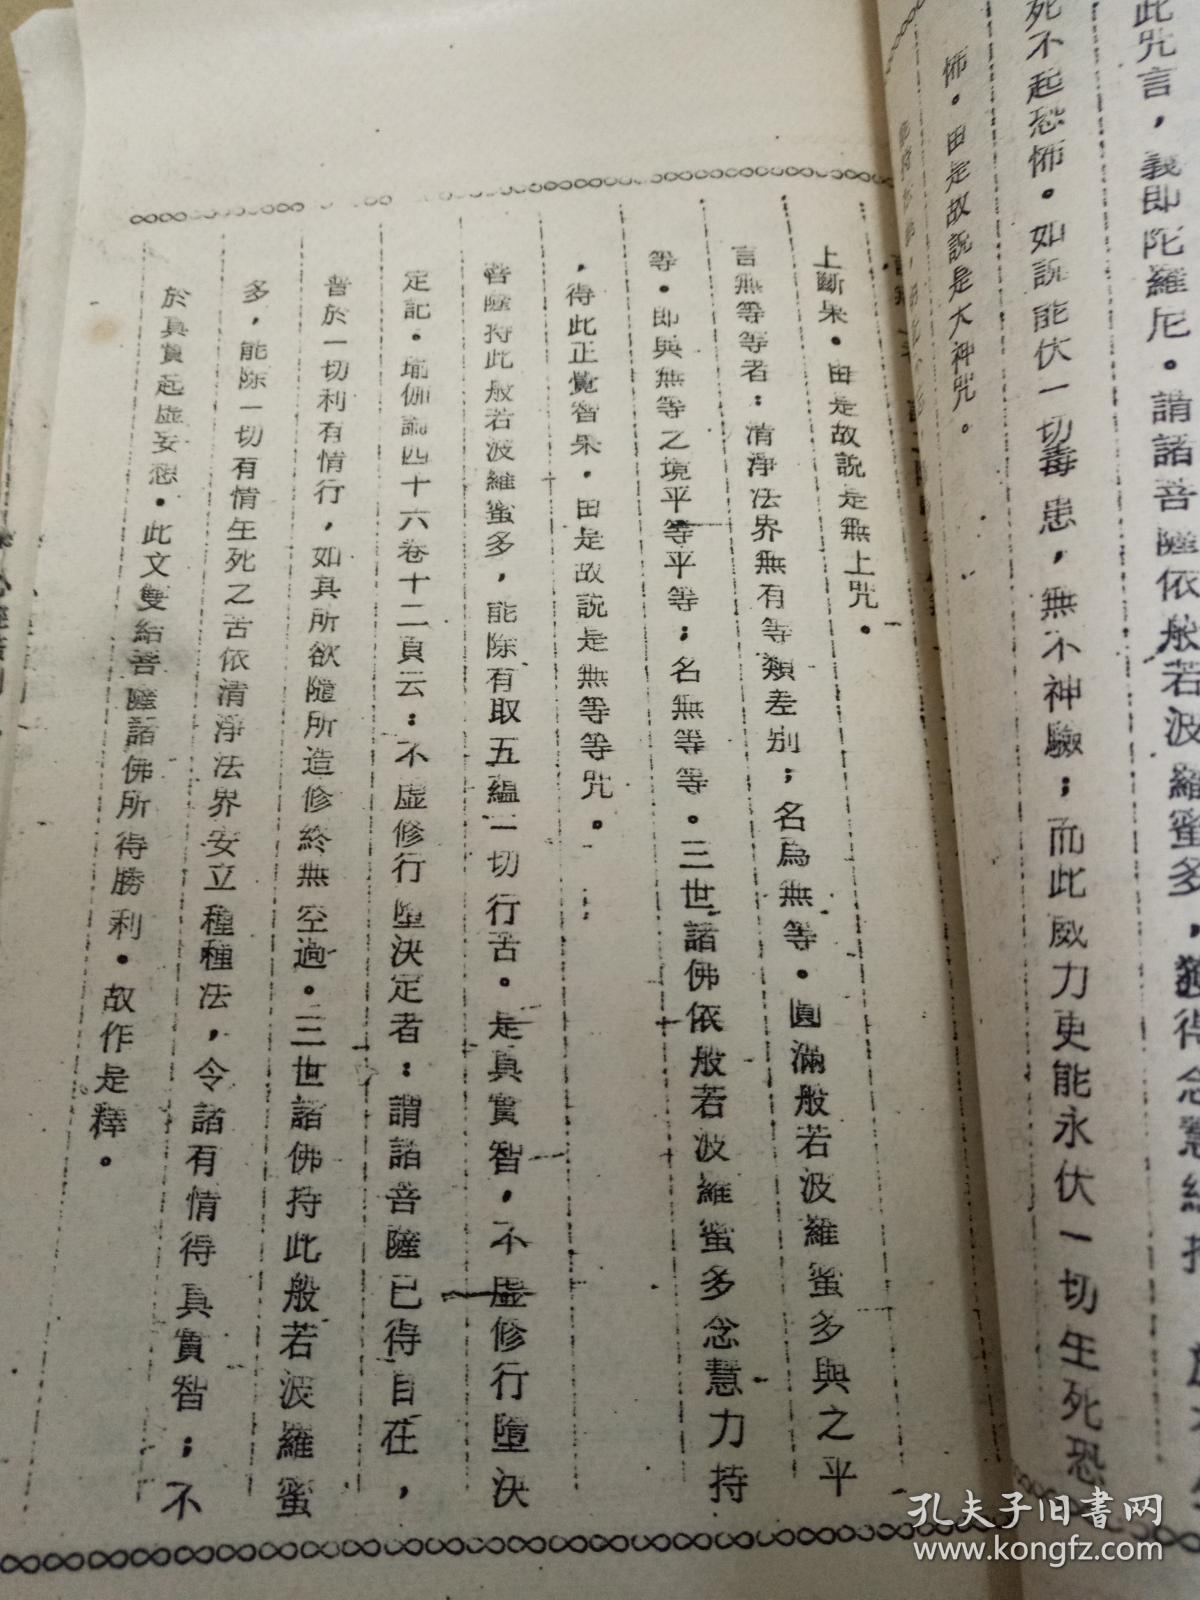 此咒言，義即陀羅尼。謂諸菩薩依般若波羅蜜多，獲得念慧
死不起恐怖。如說能伏一切毒患，無不神驗；而此威力更能永伏一切生死恐
怖。由是故說是大神咒。
上斷果。由是故說是無上咒。
言無等等者：清淨法界無有等類差別；名爲無等。圓滿般若波羅蜜多與之平
等。即與無等之境平等平等；名無等等。三世諸佛依般若波羅蜜多念慧力持
，得此正覺智果。由是故說是無等等咒。
菩薩持此般若波羅蜜多，能除有取五蘊一切行苦。是真實智，不虛修行墮決
定記。瑜伽論四十六卷十二頁云：不虛修行墮決定者：謂諸菩薩已得自在，
普於一切利有情行，如其所欲隨所造修終無空過。三世諸佛持此般若波羅蜜
多，能除一切有情生死之苦依清淨法界安立種種法，令諸有情得真實智；不
於真實起虛妄想。此文雙結菩薩諸佛所得勝利。故作是釋。
孔夫子旧书网
www.kongfz.com